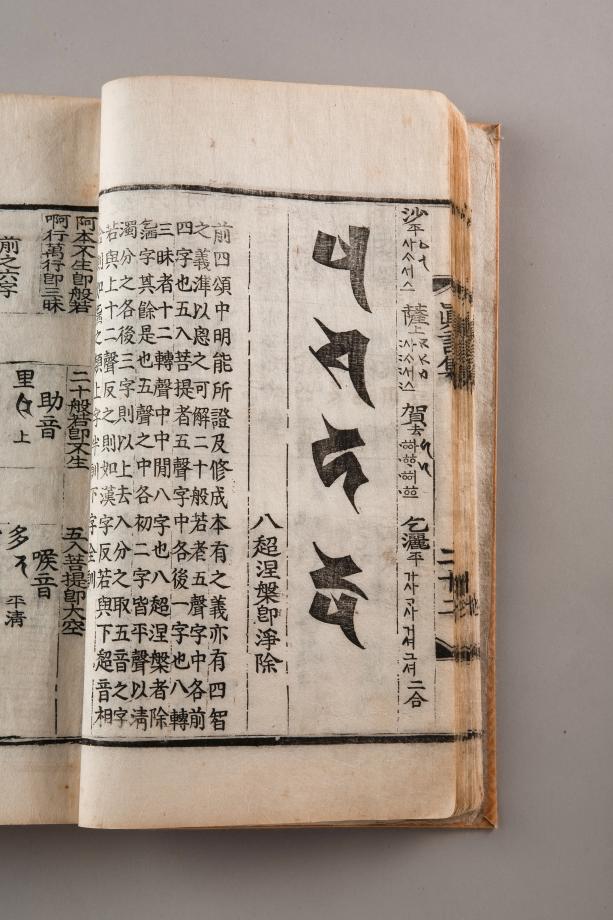 眞言集
二十二
沙平 사ᄉᆞ서스 薩上 사ᄉᆞ서스 賀去 乞灑平 가사고사거셔그셔 二合
𑖬 𑖭 𑖮 𑖎𑖿𑖬
八超涅槃卽淨除
前四頌中明能所證及修成本有之義亦有四智
之義準以思之可解二十般若者五聲字中各前
四字也五入菩提者五聲字中各後一字也八轉
三昧者十二轉聲中中間八字也八超涅槃者除
字其餘是也五聲之中各初二字皆平聲以淸
濁分之各後三字則以上去入分之取五音之字
若與上十二聲反之則如漢字反若與下超音相
之類上字半訓下字全訓
阿本不生卽般若 二十般若卽不生 五入菩提卽大空
啊行萬行卽三昧 助音 喉音
前之六字 里 上 多 平淸